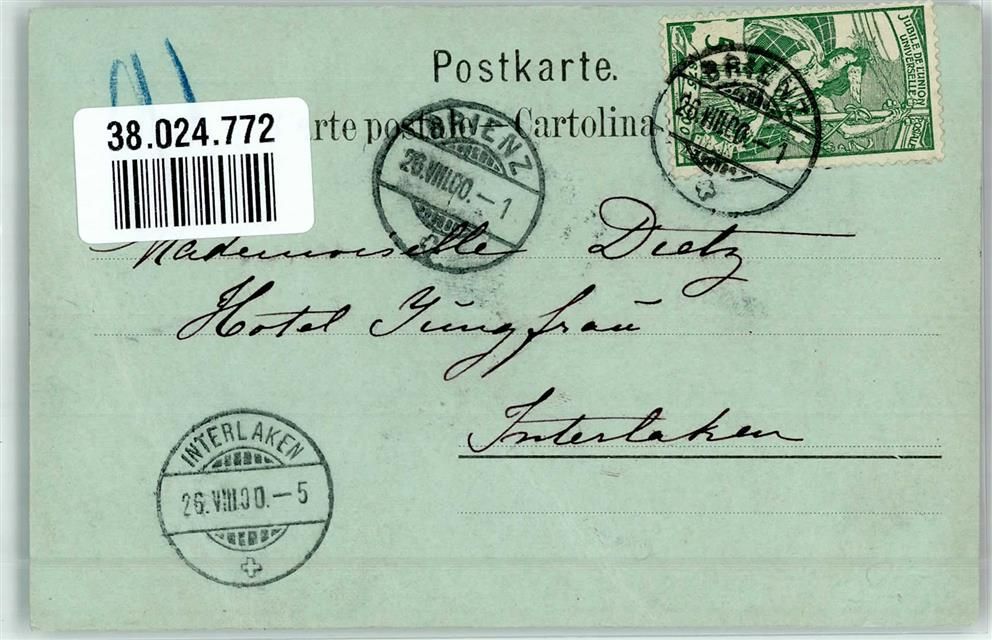 Postkarte.
rte postale. Cartolina
38.024.772
5
JUBILÉ DE L'UNION
UNIVERSELLE
POSTALE
BRIENZ
26.VIII.00.-1
BRIENZ
26.VIII.00.-1
Mademoiselle Dietz
Hotel Jungfrau
Interlaken
INTERLAKEN
26.VIII.00.-5